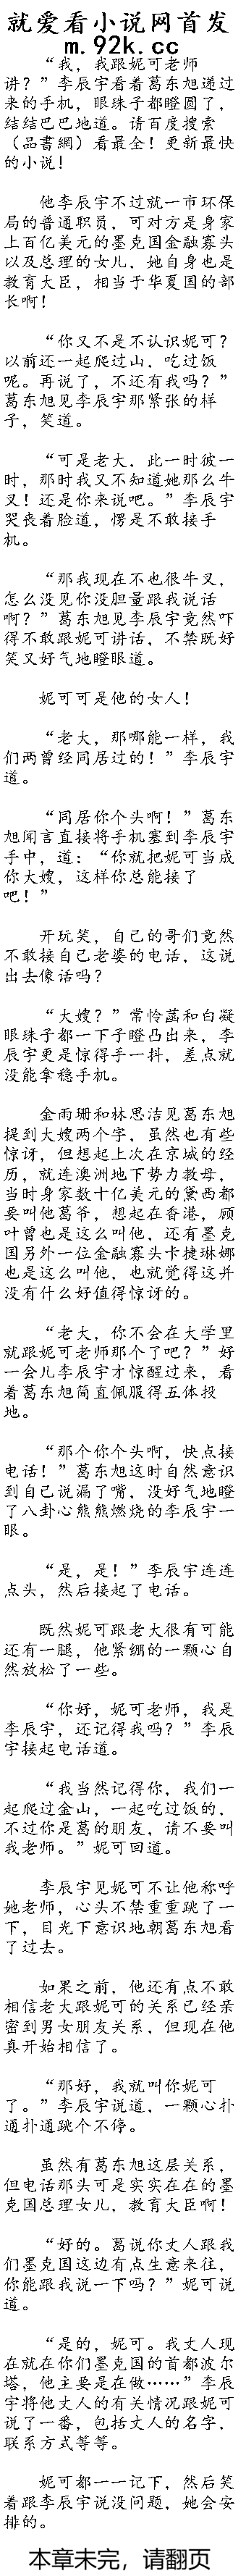 就爱看小说网首发
m.92k.cc
“我，我跟妮可老师
讲？”李辰宇看着葛东旭递过
来的手机，眼珠子都瞪圆了，
结结巴巴地道。请百度搜索
（品書網）看最全！更新最快
的小说！
他李辰宇不过就一市环保
局的普通职员，可对方是身家
上百亿美元的墨克国金融寡头
以及总理的女儿，她自身也是
教育大臣，相当于华夏国的部
长啊！
“你又不是不认识妮可？
以前还一起爬过山，吃过饭
呢。再说了，不还有我吗？”
葛东旭见李辰宇那紧张的样
子，笑道。
“可是老大，此一时彼一
时，那时我又不知道她那么牛
叉！还是你来说吧。”李辰宇
哭丧着脸道，愣是不敢接手
机。
“那我现在不也很牛叉，
怎么没见你没胆量跟我说话
啊？”葛东旭见李辰宇竟然吓
得不敢跟妮可讲话，不禁既好
笑又好气地瞪眼道。
妮可可是他的女人！
“老大，那哪能一样，我
们两曾经同居过的！”李辰宇
道。
“同居你个头啊！”葛东
旭闻言直接将手机塞到李辰宇
手中，道：“你就把妮可当成
你大嫂，这样你总能接了
吧！”
开玩笑，自己的哥们竟然
不敢接自己老婆的电话，这说
出去像话吗？
“大嫂？”常怜菡和白凝
眼珠子都一下子瞪凸出来，李
辰宇更是惊得手一抖，差点就
没能拿稳手机。
金雨珊和林思洁见葛东旭
提到大嫂两个字，虽然也有些
惊讶，但想起上次在京城的经
历，就连澳洲地下势力教母，
当时身家数十亿美元的黛西都
要叫他葛爷，想起在香港，顾
叶曾也是这么叫他，还有墨克
国另外一位金融寡头卡捷琳娜
也是这么叫他，也就觉得这并
没有什么好值得惊讶的。
“老大，你不会在大学里
就跟妮可老师那个了吧？”好
一会儿李辰宇才惊醒过来，看
着葛东旭简直佩服得五体投
地。
“那个你个头啊，快点接
电话！”葛东旭这时自然意识
到自己说漏了嘴，没好气地瞪
了八卦心熊熊燃烧的李辰宇一
眼。
“是，是！”李辰宇连连
点头，然后接起了电话。
既然妮可跟老大很有可能
还有一腿，他紧绷的一颗心自
然放松了一些。
“你好，妮可老师，我是
李辰宇，还记得我吗？”李辰
宇接起电话道。
“我当然记得你，我们一
起爬过金山，一起吃过饭的，
不过你是葛的朋友，请不要叫
我老师。”妮可回道。
李辰宇见妮可不让他称呼
她老师，心头不禁重重跳了一
下，目光下意识地朝葛东旭看
了过去。
如果之前，他还有点不敢
相信老大跟妮可的关系已经亲
密到男女朋友关系，但现在他
真开始相信了。
“那好，我就叫你妮可
了。”李辰宇说道，一颗心扑
通扑通跳个不停。
虽然有葛东旭这层关系，
但电话那头可是实实在在的墨
克国总理女儿，教育大臣啊！
“好的。葛说你丈人跟我
们墨克国这边有点生意来往，
你能跟我说一下吗？”妮可说
道。
“是的，妮可。我丈人现
在就在你们墨克国的首都波尔
塔，他主要是在做……”李辰
宇将他丈人的有关情况跟妮可
说了一番，包括丈人的名字，
联系方式等等。
妮可都一一记下，然后笑
着跟李辰宇说没问题，她会安
排的。
本章未完，请翻页